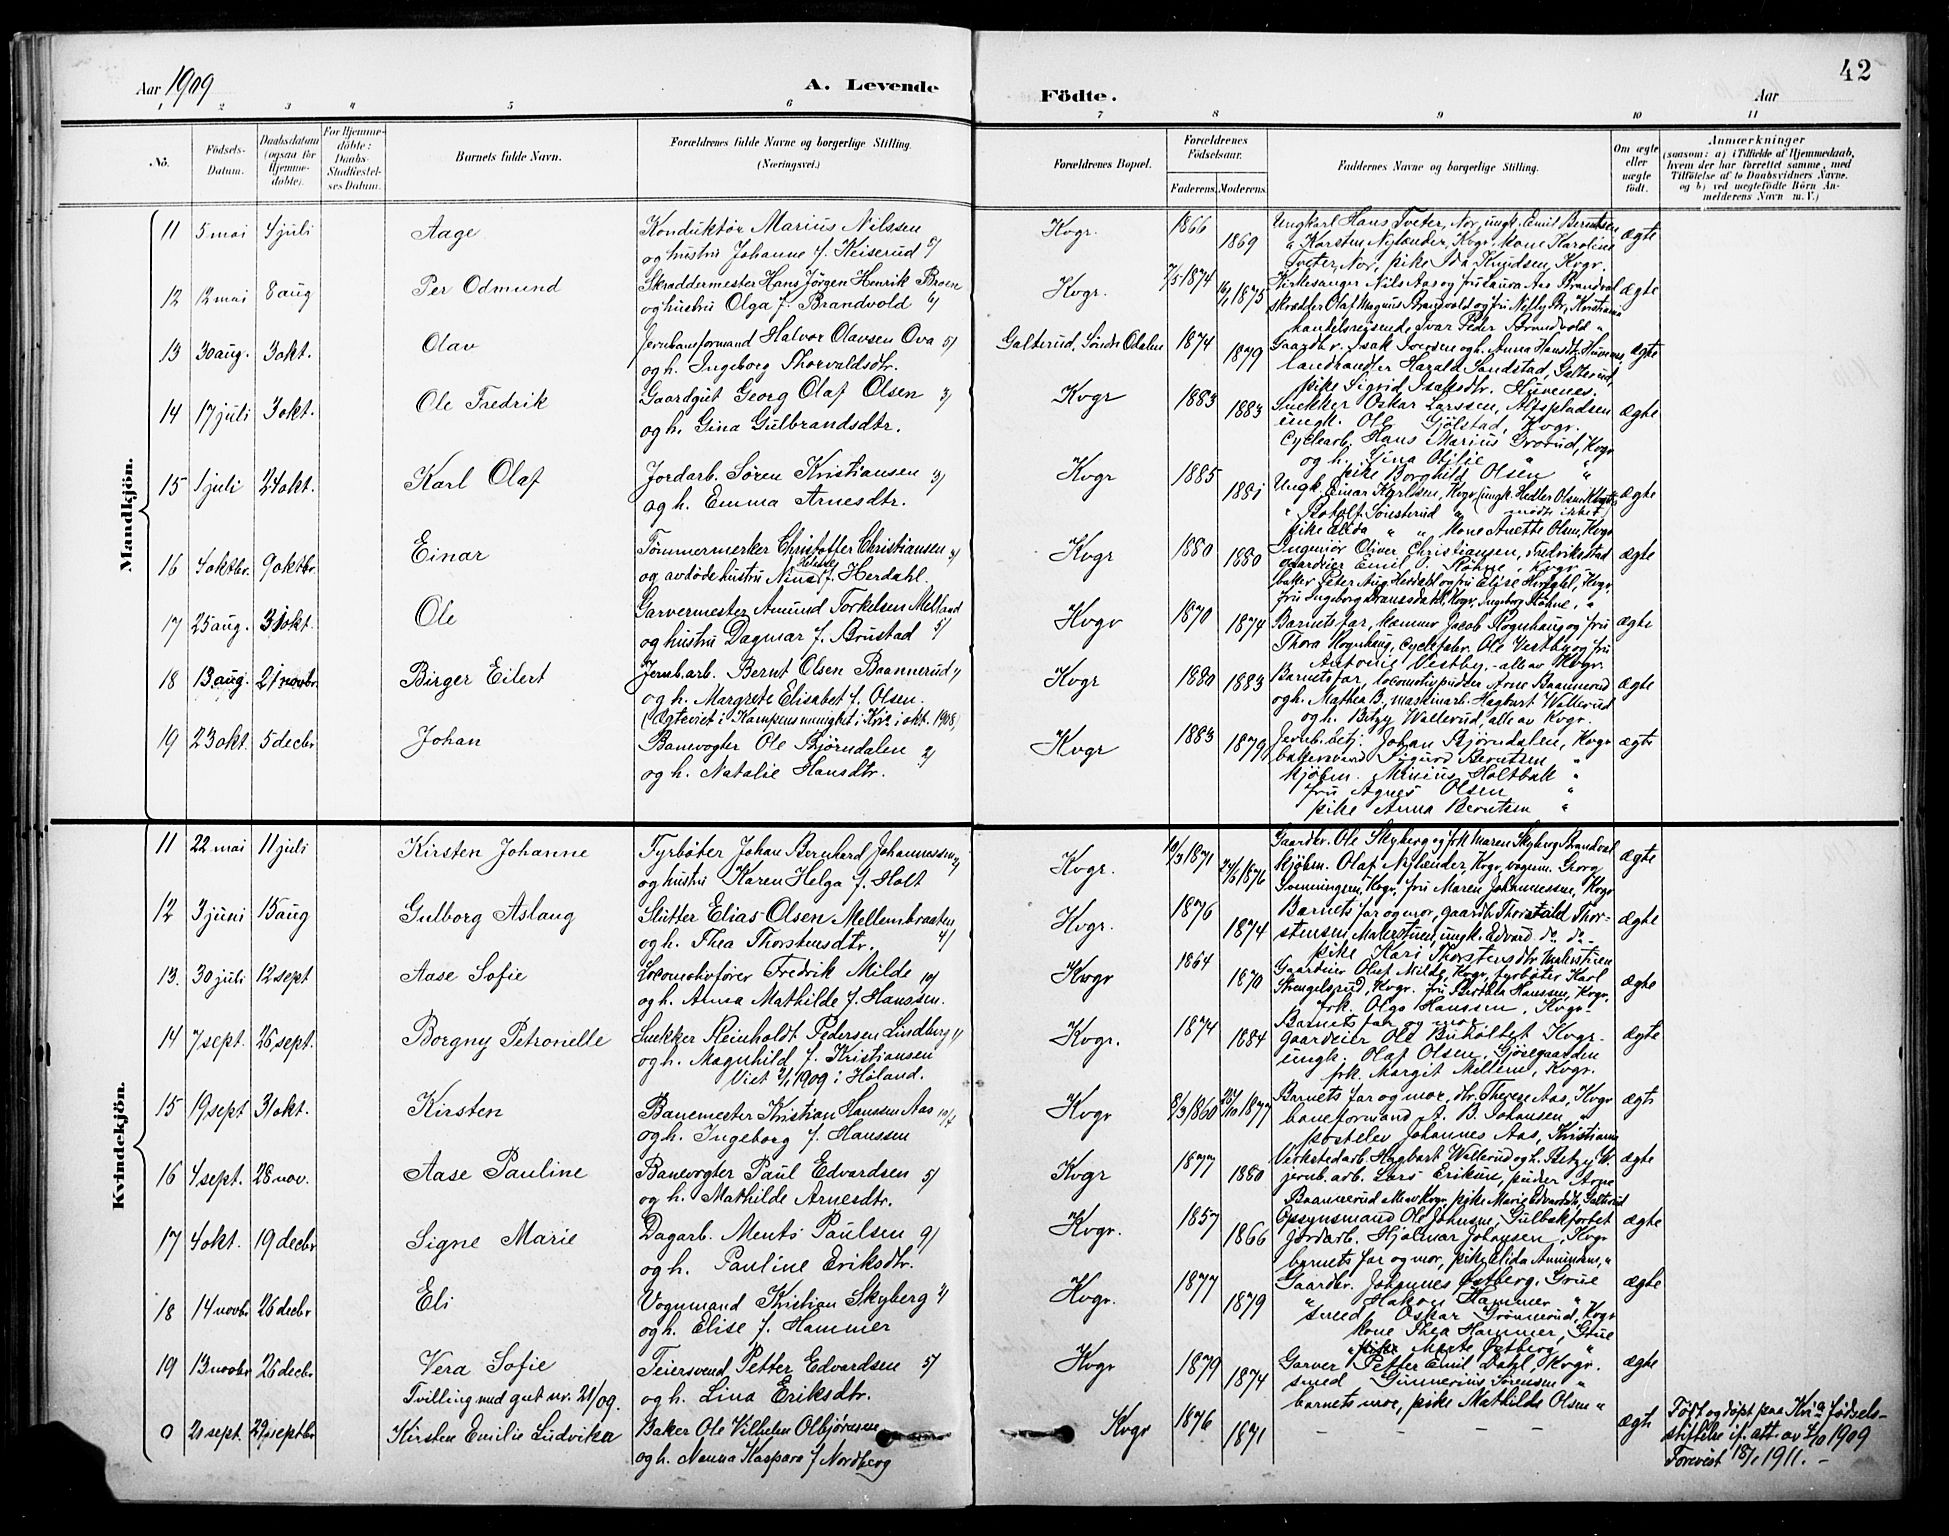 Aar 1909
A. Levende
Födte.
Aar
42
1 2 3 4 5 6 7 8 9 10 11
No.
Födsels-Datum.
Daabsdatum (ogsaa for Hjemme-döbte).
For Hjemme-döbte: Daabs-Stadfæstel-ses Datum.
Barnets fulde Navn.
Forældrenes fulde Navne og borgerlige Stilling. (Næringsvei.)
Forældrenes Bopæl.
Forældrenes Födselsaar.
Faderens. Moderens.
Faddernes Navne og borgerlige Stilling.
Om ægte eller uægte födt.
Anmærkninger
(saasom: a) i Tilfælde af Hjemmedaab, hvem der har forrettet samme, med Tilföielse af to Daabsvidners Navne. og b) ved uægtefödte Börn An-melderens Navn m. V.)
Mandkjön.
11 5 mai 4 juli Aage Konduktør Marius Nilssen Kvgr. 1866 Ungkarl Hans Tveter, Nor, ungk. Emil Berntsen ægte
og hustru Johanne f. Keiserud 5/ 1869 " Karsten Nylænder, Kvgr, kone Karoline
Tveter, Nor, pike Ida Knudsen, Kvgr.
12 12 mai 8 aug Per Odmund Skræddermester Hans Jörgen Henrik Broen Kvgr. 7/5 1874 Kirkesanger Nils Aas og fru Laura Aas Brandval ægte
og hustru Olga f. Brandvold 6/ 1875 skrædder Olaf Magnus Brandvold og fru Nilly Br., Kristiania
handelsreisende Ivar Peder Brandvold "
13 30 aug. 3 okt. Olav Jernbaneformand Halvor Olavsen Ova 5/ Galterud, Söndre Odalen 1874 Gaardbr. Isak Iversen og h. Anna Hansdtr. Huvenes, ægte
og h. Ingeborg Thorvaldsdtr. 1879 landhandler Harald Sandstad, Galterud,
pike Sigrid Isaksdtr. Huvenes.
14 17 juli 3 okt. Ole Fredrik Gaardgut Georg Olaf Olsen 3/ Kvgr 1883 Snekker Oskar Larssen, Alfspladsen ægte
og h. Gina Gulbrandsdtr. 1883 ungk. Ole Gjölstad, Kvgr.
Cyclearb. Hans Marius Grorud, Kvgr
og h. Gina Otilie " "
pike Borghild Olsen "
15 1 juli 24 okt. Karl Olaf Jordarb. Sören Kristiansen 3/ Kvgr 1885 Ungk. Einar Karlsen, Kvgr (ungk. Hedler Olsen Kvgr ægte
og h. Emma Arnesdtr. 1881 " Rodolf Sönsterud " mödte ikke)
pike Elida " " kone Anette Olsen, Kvgr
16 4 oktbr. 9 oktbr. Einar Tömmermerker Christoffer Christiansen Kvgr 1880 Ingeniör Oliver Christiansen, Fredrikstad ægte
og avdöde hustru Nina f. Herdahl. 1880 gaardeier Emil O. Röhne, Kvgr
baker Peter Aug. Herdahl og fru Elise Herdahl, Kvgr,
fru Ingeborg Kvgr, Ingeborg Röhne, "
17 25 aug. 31 okt. Ole Garvermester Amund Torkelsen Melland Kvgr 1870 Barnets far, kæmner Jacob Rognhaug og fru ægte
og hustru Dagmar f. Brustad 5/ 1874 Thora Rognhaug, Cyclefabr. Ole Vestby og fru
Antonie Vestby, - alle av Kvgr.
18 13 aug. 21 novbr. Birger Eilert Jernb.arb. Bernt Olsen Baannerud Kvgr 1880 Barnets far, locomotivpudser Arne Baannerud ægte
og h. Margrete Elisabet f. Olsen. 1883 og h. Mathea B., maskinarb. Hagbart Wallerud
(Ægteviet i Kampens menighet i Kria i okt. 1908) og h. Bitzy Wallerud, alle av Kvgr.
19 23 okt. 5 decbr Johan Banevogter Ole Björndalen 2/ Kvgr 1883 Jernb.betj. Johan Björndalen, Kvgr ægte
og h. Natalie Hansdtr. 1879 bakersvend Sigurd Berntsen "
kjöbm. Minius Holtbak "
fru Agnes Olsen "
pike Anna Berntsen "
Kvindekjön.
11 22 mai 11 juli Kirsten Johanne Fyrböter Johan Bernhard Johannessen Kvgr. 1871 Gaardbr. Ole Skyberg og frk Maren Skyberg Brandval ægte
og hustru Karen Helga f. Holt 1876 kjöbm. Olaf Nylænder, Kvgr, vognm. Georg
Kvgr, fru Maren Johannessen, Kvgr
12 3 juni 15 aug Gulborg Aslaug Slutter Elias Olsen Mellembraaten Kvgr. 1876 Barnets far og mor, gaardb. Thorstald Thor- ægte
og h. Thea Thorstensdtr. 4/ 1874 stensen, Malerstuen, ungk. Edvard do do
pike Kari Thorstensdtr Malerstuen
13. 30 juli 12 sept Aase Sofie Locomotivförer Fredrik Milde 10/ Kvgr 1864 Gaardeier Oluf Milde, Kvgr, fyrböter Karl ægte
og h. Anna Mathilde f. Hanssen. 1870 Strengelsrud, Kvgr. fru Berthea Hanssen, Kvgr,
frk. Olga Hanssen, Kvgr.
14 7 sept. 26 sept. Borgny Petronelle Snekker Reinholdt Pedersen Lindberg Kvgr. 1874 Barnets far og mor ægte
og h. Magnhild f. Kristiansen 1884 gaardeier Ole Buholtet Kvgr.
Viet 2/1 1909 i Höland. ungk. Olaf Olsen, Gjösegaarden
frk. Margit Mellem, Kvgr.
15 19 sept 31 okt. Kirsten Banemester Kristian Hanssen Aas Kvgr 8/3 1860 Barnets far og mor, dr. Therese Aas, Kvgr ægte
og h. Ingeborg f. Hanssen 1877 baneformand A. B. Johansen "
postelev Johannes Aas, Kristiania
16 4 sept. 28 nov. Aase Pauline Banevogter Paul Edvardsen 5/ Kvgr 1877 Verkstedarb. Hagbart Wallerud og h. Bitzy W. ægte
og h. Mathilde Arnesdtr. 1880 jernb.arb. Lars Eriksen, pudser Arne
Baannerud alle av Kvgr, pike Marie Edvardsdtr, Galterud
17 4 okt. 19 decbr Signe Marie Dagarb. Ments Paulsen 9/ Kvgr. 1857 Opsynsmand Ole Johnsen, Gulbækfortet ægte
og h. Pauline Eriksdtr. 1866 jordarb. Hjalmar Johansen, Kvgr
barnets far og mor, pike Elida "
18 14 novbr 26 decbr Eli Vognmand Kristian Skyberg Kvgr. 1877 Gaardbr. Johannes Östberg, Grue ægte
og h. Elise f. Hammer 1879 " Hakon Hammer "
smed Oskar Grönnerud, Kvgr
kone Thea Hammer, Grue
pike Marte Östberg "
19 13 novbr 26 decbr Vera Sofie Feiersvend Petter Edvardsen 5/ Kvgr 1879 Garver Petter Emil Dahl, Kvgr. ægte
Tvilling med gut nr. 21/09. og h. Lina Eriksdtr. 1874 smed Gunnerius Sörensen "
barnets mor, pike Mathilde Olsen "
0 21 sept. 29 septbr Kirsten Emilie Ludvika Baker Ole Vilhelm Olbjörnsen Kvgr 1876 - - - - ægte Födt og döpt paa Kria födsels-
og h. Nanna Kaspara f Nordberg 1871 stiftelse if. att. av 1909
Forevist 18/1 1911. -